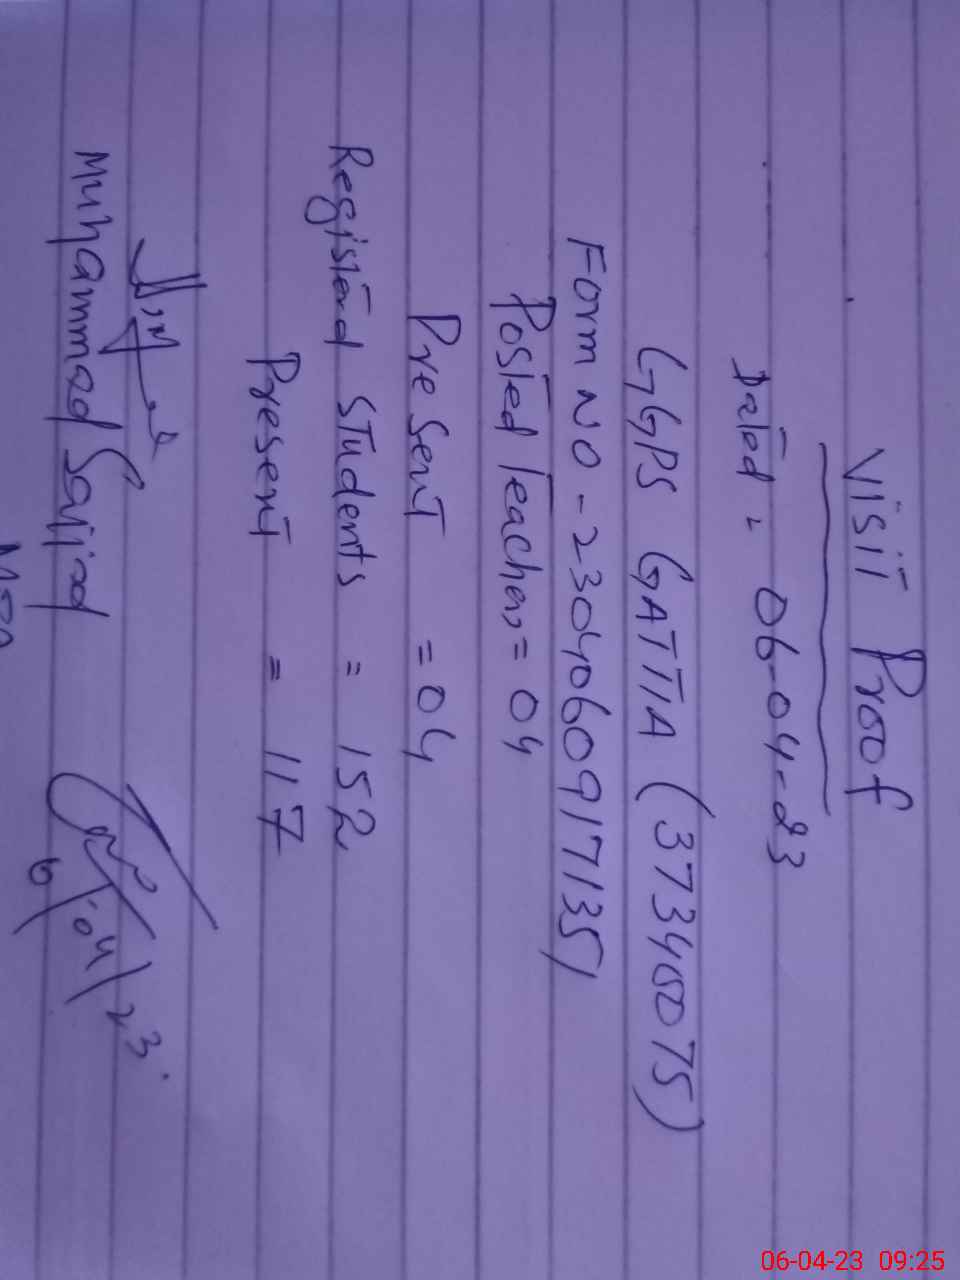 Visit Proof
Dated - 06-04-23
GGPS GATTIA (37340075)
Form NO - 2304060917135)
Posted Teacher, = 04
Present = 04
Registerd Students = 152
Present = 117
6/04/23.
Muhammad Sajjad
06-04-23 09:25